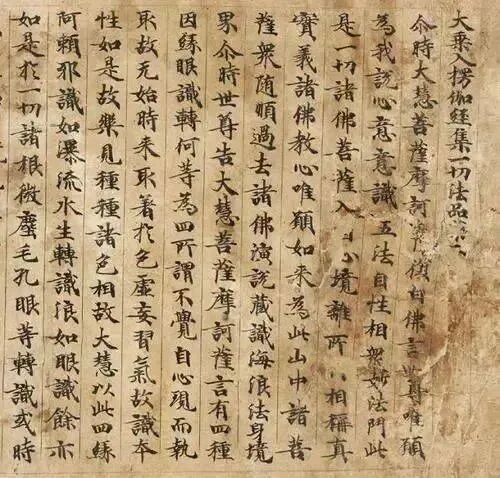 大乘入楞伽經集一切法品
尒時大慧菩薩摩訶薩復白佛言世尊唯願
為我說心意意識五法自性相衆妙法門此
是一切諸佛菩薩入心境離所相稱真
實義諸佛教心唯願如来為此山中諸菩
薩衆随順過去諸佛演說藏識海浪法身境
界尒時世尊告大慧菩薩摩訶薩言有四種
因緣眼識轉何等為四所謂不覺自心現而執
取故无始時来取著於色虛妄習氣故識本
性如是故樂見種種諸色相故大慧以此四緣
阿賴邪識如瀑流水生轉識浪如眼識餘亦
如是於一切諸根微塵毛孔眼等轉識或時